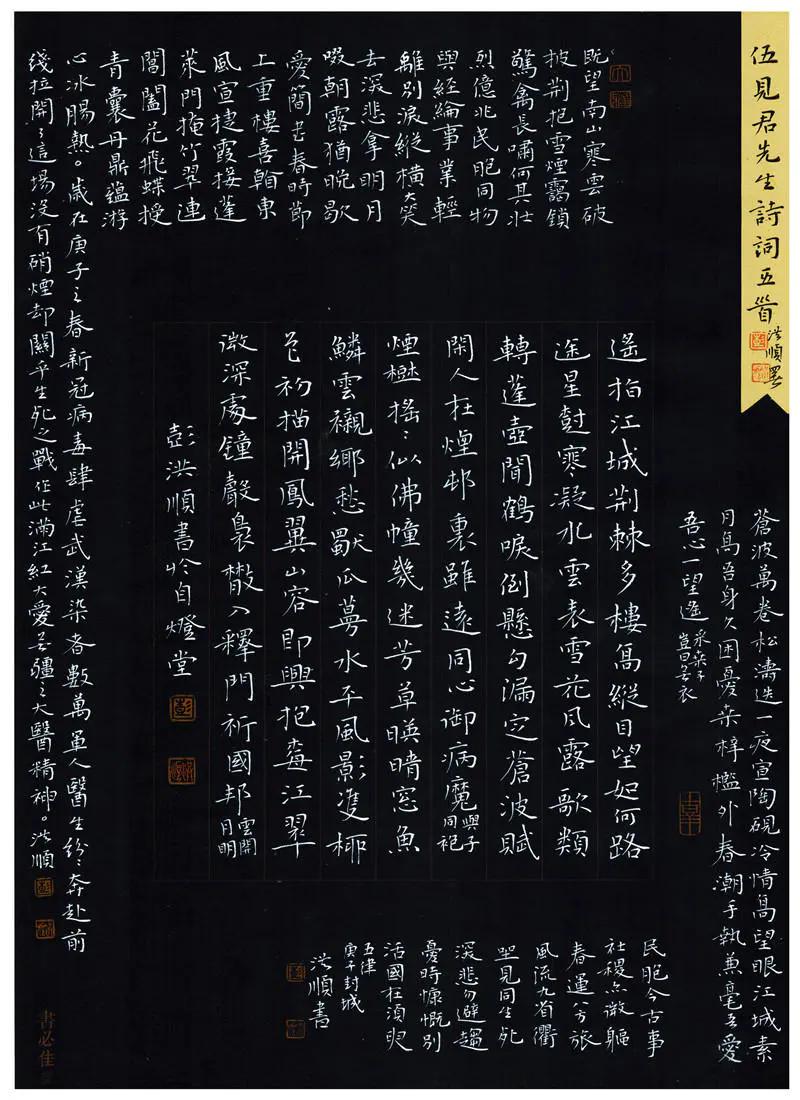 伍見君先生詩詞五首
洪順署
蒼波萬卷松濤迭一夜宣陶硯冷情高望眼江城素
月高吾身久困憂桑梓檻外春潮手執兼毫吾愛
吾心一望遙
采桑子
豈曰無衣
既望南山寒雲破
披荆抱雪煙靄鎖
驚禽長嘯何其壯
烈億兆民胞同物
與經綸事業輕
離別淚縱橫大哭
去深悲拿明月
啜朝露猶晚歇
愛簡書春時節
上重樓喜翰東
風宣捷霞接蓬
萊門掩竹翠連
閶闔花飛蝶授
青囊丹鼎蘊游
心冰腸熱。歲在庚子之春新冠病毒肆虐武漢染者數萬軍人醫生紛紛奔赴前
綫拉開了這場沒有硝煙却關乎生死之戰作此滿江紅大愛無疆之大醫精神。洪順
遙指江城荆棘多樓高縱目望如何路
途星寒凝水雲表雪花風露歌類
轉蓬壺聞鶴唳倒懸勾漏定蒼波賦
閑人在煙邨裏雖遠同心御病魔
與子同袍
煙樾搖搖似佛幢幾迷芳草暎晴窓魚
鱗雲襯鄉愁獸瓜蔓水平風影雙柳
色初描開鳳翼山容即興抱江翠
微深處鐘聲裊散入釋門祈國邦
雲開月明
彭洪順書於自燈堂
民胞今古事
社稷亦微軀
春運兮旅
風流九省衢
坐見同生死
深悲勾避趨
憂時慷慨別
活國在須臾
五律
庚子封城
洪順書
書必佳